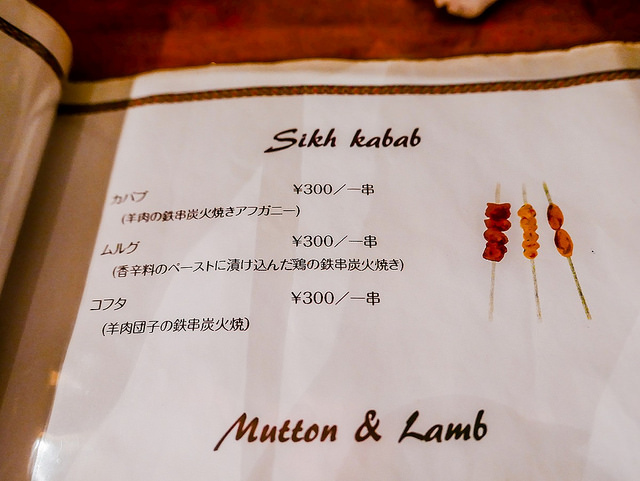 Sikh kabab
カバブ ¥300／一串
(羊肉の鉄串炭火焼きアフガニー)
ムルグ ¥300／一串
(香辛料のペーストに漬け込んだ鶏の鉄串炭火焼き)
コフタ ¥300／一串
(羊肉団子の鉄串炭火焼)
Mutton & Lamb